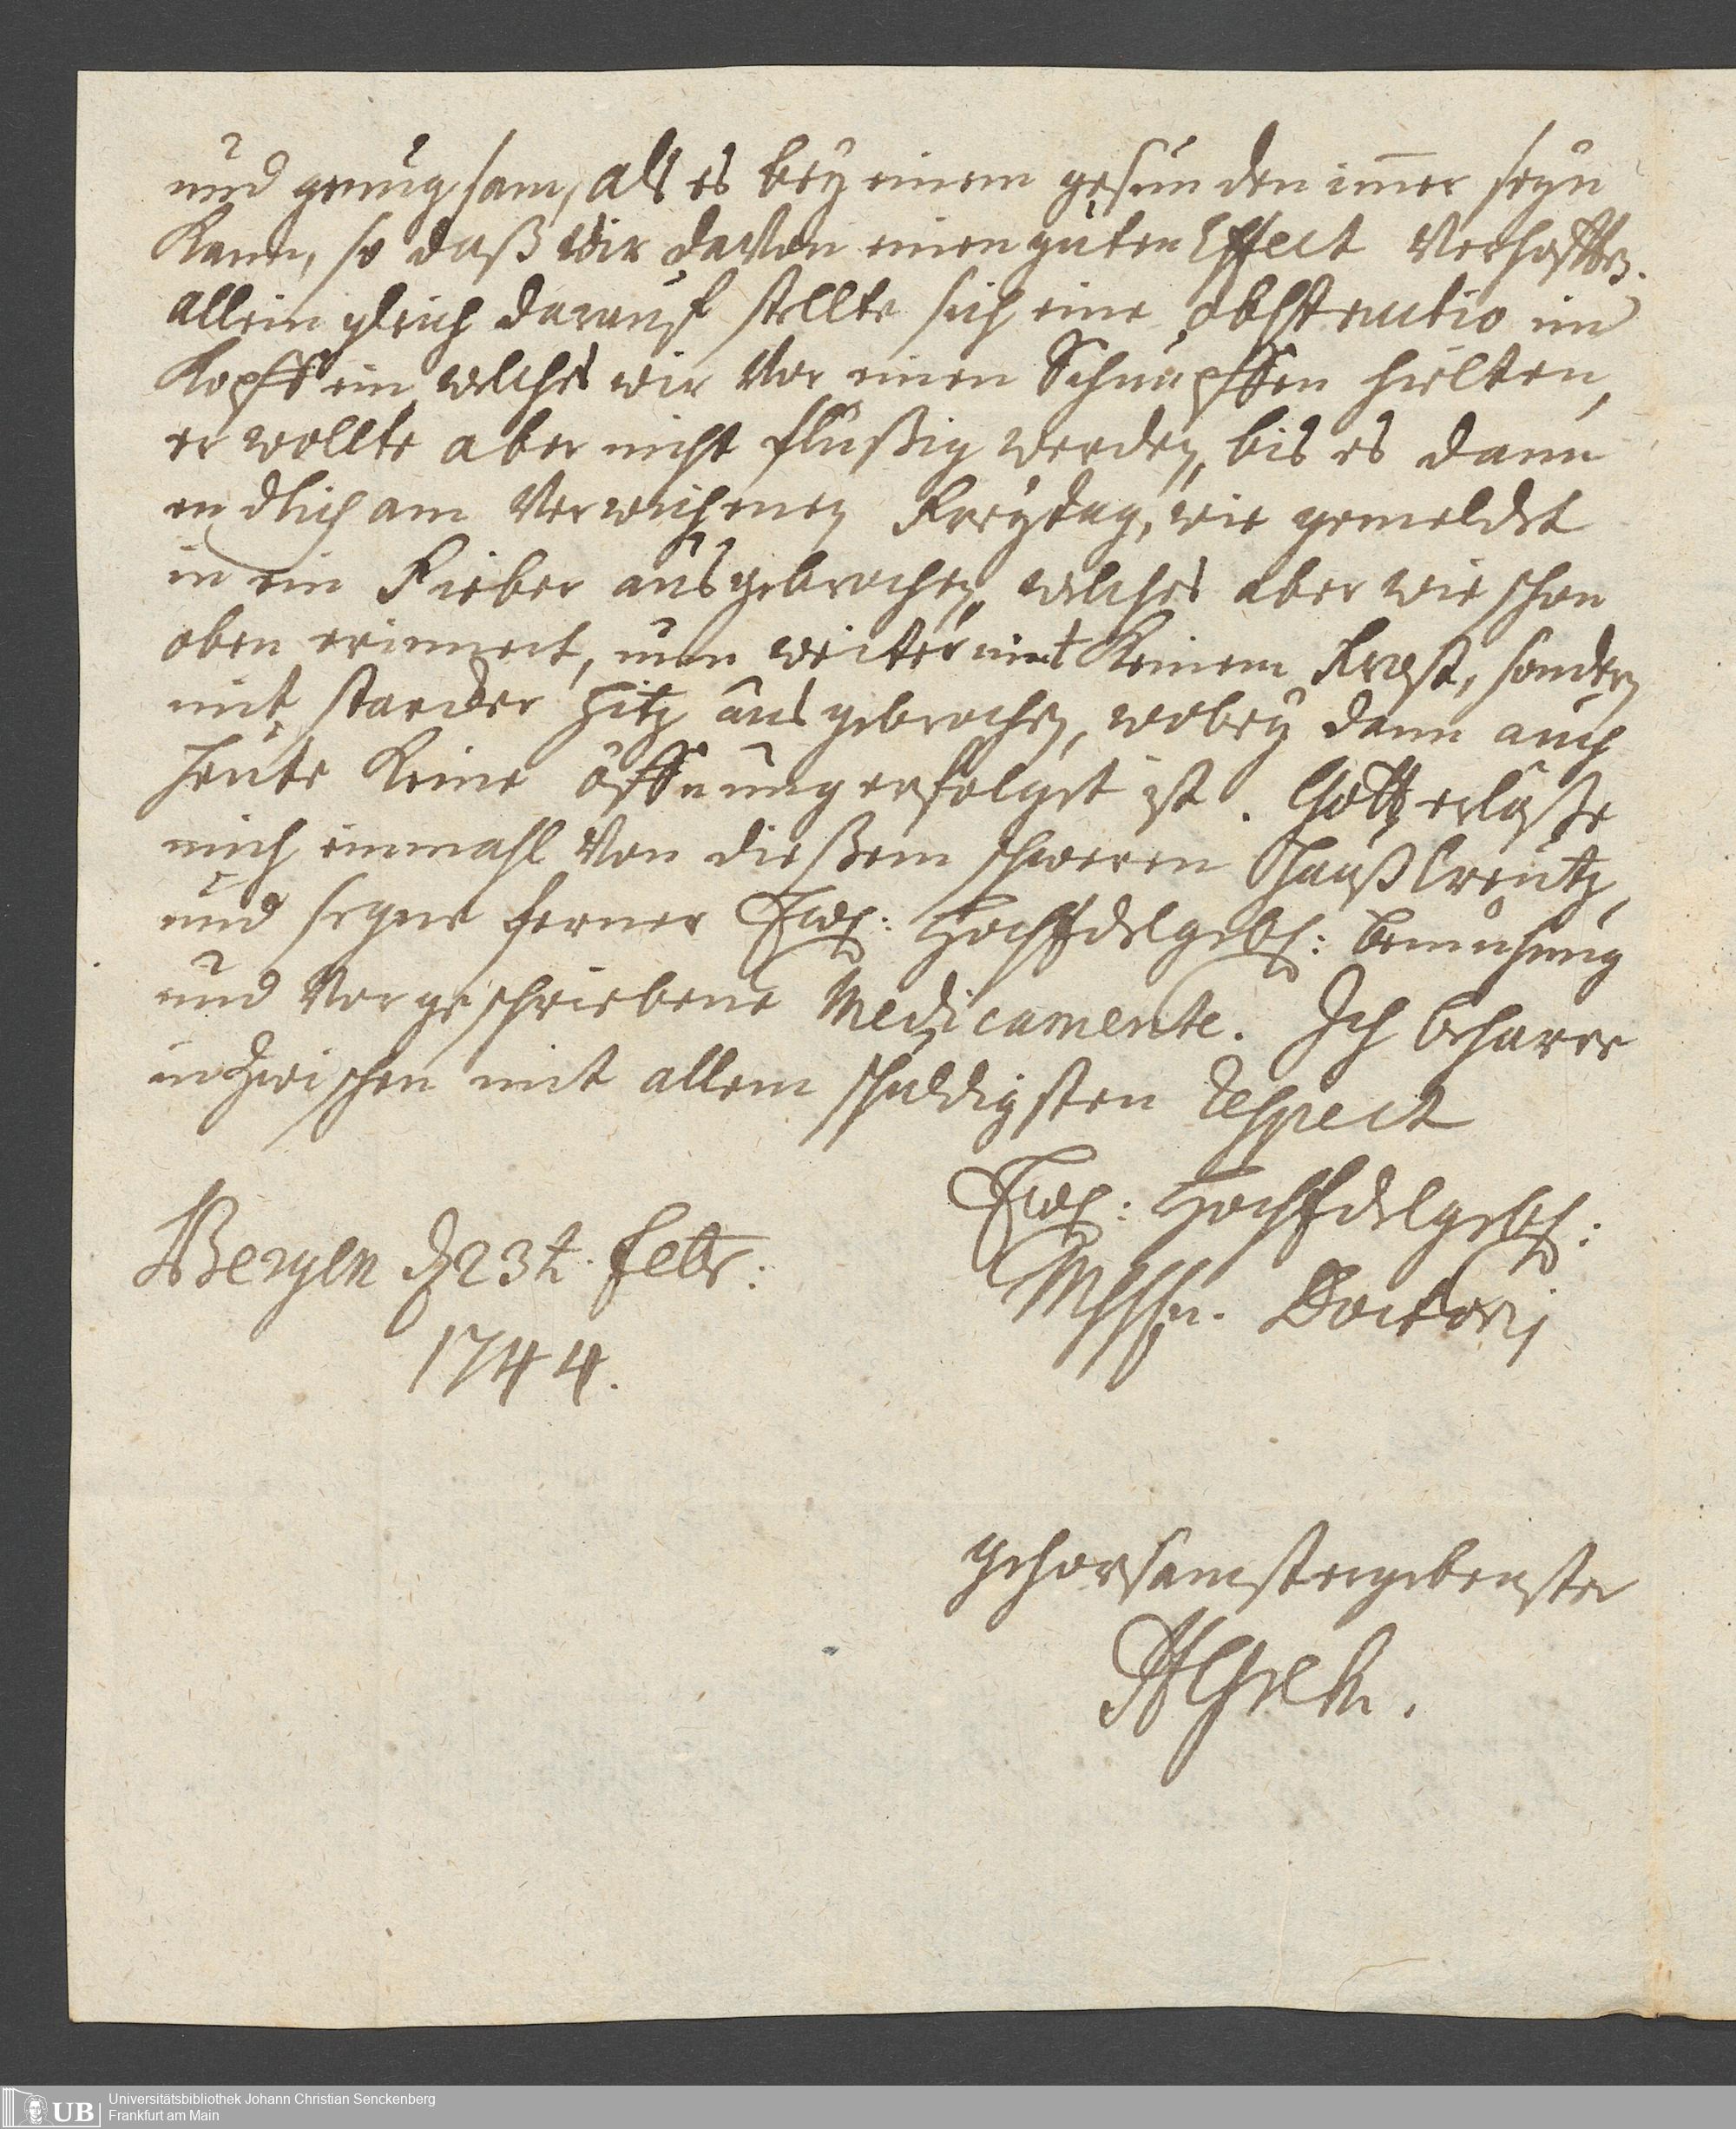 und genugsam, als es bey einem gesunden im̄er seyn
Kann, so daß wir davon einen guten Effect verhofften.
allein gleich darauf stellte sich eine obstructio im
Kopff ein welches wir vor einen Schnupffen hielten,
er wollte aber nicht flüßig werden, bis es dann
endlich am verwichenen Freytag, wie gemeldet
in ein Fieber ausgebrochen, welches aber wie schon
oben erinnert, nun weiter mit Keinem Frost, sondern
mit starcker Hitz ausgebrochen, wobey dann auch
heute Keine öffnung erfolget ist. Gott erlöße
mich einmahl von dießem schweren Haußcreutz,
und segne ferner Ewr: HochEdelgeb: bemühung
und vorgeschriebene Medicamente. Ich beharre
inzwischen mit allem schuldigsten Respect
Ewr: HochEdelgeb:
Bergen d 23t. Febr:
1744.
Doctoris
gehorsamstergebenster
Universitätsbibliothek Johann Christian Senckenberg
Frankfurt am Main
UB